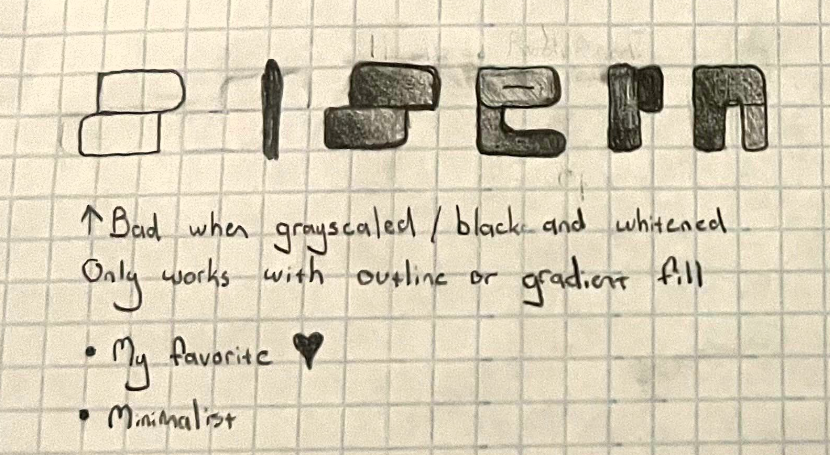 ↑ Bad when grayscaled / black and whitened
Only works with outline or gradient fill
• My favorite ♥
• Minimalist